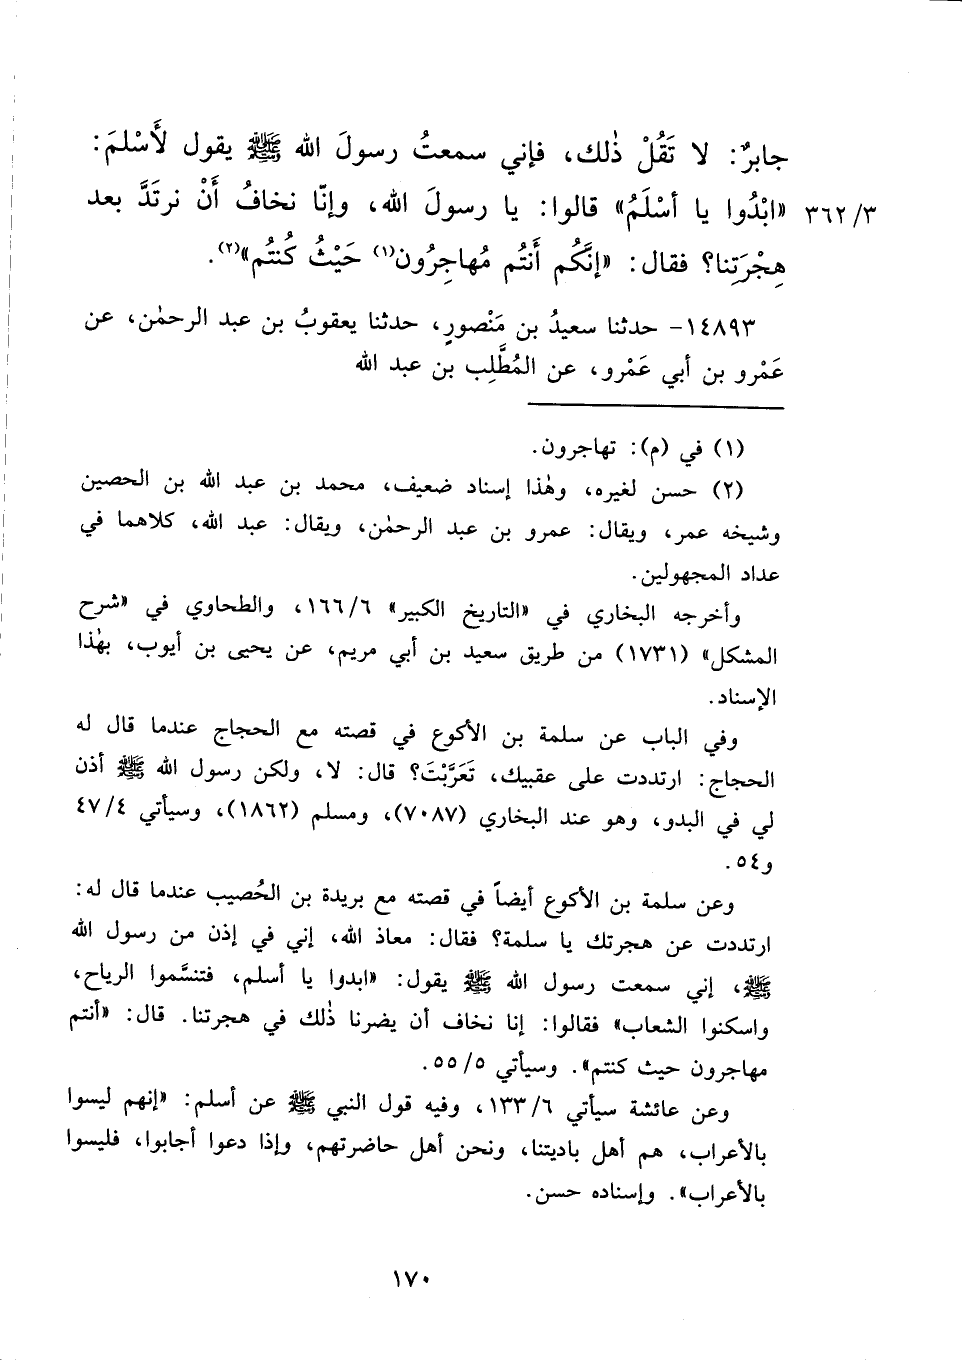 جابرٌ: لا تَقُلْ ذٰلك، فإني سمعتُ رسولَ الله ﷺ يقول لأَسْلمَ:
٣٦٢/٣ «ابْدُوا يا أسْلَمُ» قالوا: يا رسولَ الله، وإنّا نخافُ أَنْ نرتَدَّ بعد
هِجْرَتِنا؟ فقال: «إنَّكُم أَنتُم مُهاجِرُون(١) حَيْثُ كُنتُم»(٢).
١٤٨٩٣- حدثنا سعيدُ بن مَنْصورٍ، حدثنا يعقوبُ بن عبد الرحمٰن، عن
عَمْرو بن أبي عَمْرو، عن المُطَّلِب بن عبد الله
(١) في (م): تهاجرون.
(٢) حسن لغيره، وهٰذا إسناد ضعيف، محمد بن عبد الله بن الحصين
وشيخه عمر، ويقال: عمرو بن عبد الرحمٰن، ويقال: عبد الله، كلاهما في
عداد المجهولين.
وأخرجه البخاري في «التاريخ الكبير» ١٦٦/٦، والطحاوي في «شرح
المشكل» (١٧٣١) من طريق سعيد بن أبي مريم، عن يحيى بن أيوب، بهٰذا
الإسناد.
وفي الباب عن سلمة بن الأكوع في قصته مع الحجاج عندما قال له
الحجاج: ارتددت على عقبيك، تَعَرَّبْتَ؟ قال: لا، ولكن رسول الله ﷺ أذن
لي في البدو، وهو عند البخاري (٧٠٨٧)، ومسلم (١٨٦٢)، وسيأتي ٤٧/٤
و٥٤.
وعن سلمة بن الأكوع أيضاً في قصته مع بريدة بن الحُصيب عندما قال له:
ارتددت عن هجرتك يا سلمة؟ فقال: معاذ الله، إني في إذن من رسول الله
ﷺ، إني سمعت رسول الله ﷺ يقول: «ابدوا يا أسلم، فتنسَّموا الرياح،
واسكنوا الشعاب» فقالوا: إنا نخاف أن يضرنا ذٰلك في هجرتنا. قال: «أنتم
مهاجرون حيث كنتم». وسيأتي ٥٥/٥.
وعن عائشة سيأتي ١٣٣/٦، وفيه قول النبي ﷺ عن أسلم: «إنهم ليسوا
بالأعراب، هم أهل باديتنا، ونحن أهل حاضرتهم، وإذا دعوا أجابوا، فليسوا
بالأعراب». وإسناده حسن.
١٧٠